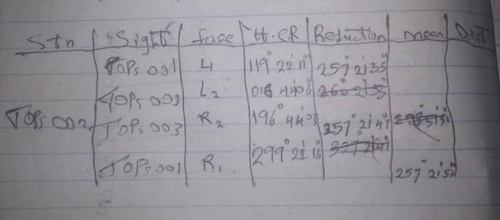 Stn Sight face H.CR Reduction mean Dist
TOPs 001 L 119° 22' 11" 257° 21' 55"
TOPs 003 L2 016° 44' 06"
TOPs 002 TOPs 003 R2 196° 44' 03" 257° 21' 47"
TOPs 001 R1 299° 22' 16"
257° 21' 51"